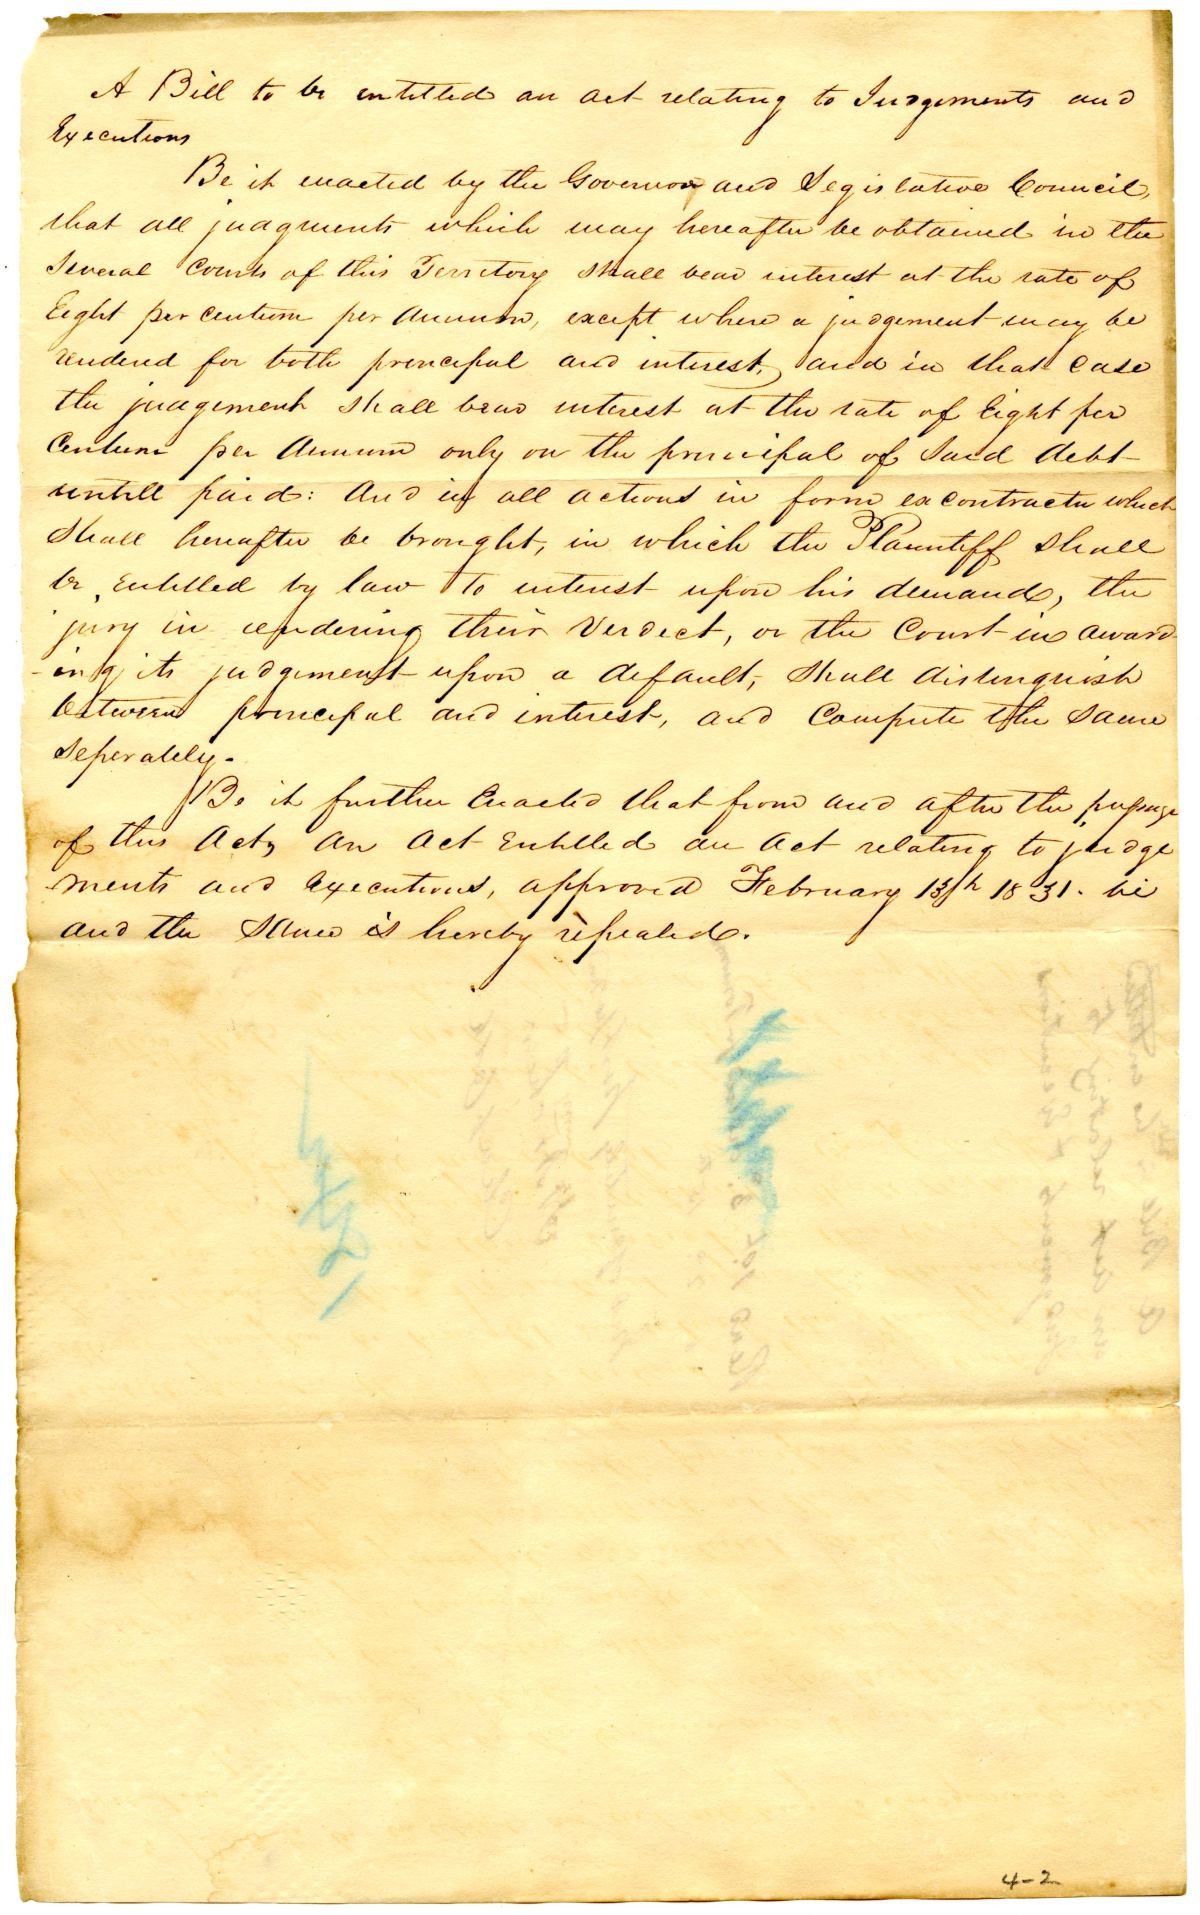 A Bill to be entitled an act relating to Judgements and
Executions
Be it enacted by the Governor and Legislative Council,
that all judgments which may hereafter be obtained in the
several Courts of this Territory shall bear interest at the rate of
Eight per centum per Annum, except where a judgement may be
rendered for both principal and interest, and in that case
the judgement shall bear interest at the rate of Eight per
Centum per Annum only on the principal of said debt
untill paid: And in all actions in form excontractu which
shall hereafter be brought, in which the Plaintiff shall
be entitled by law to interest upon his demand, the
jury in rendering their Verdict, or the Court in award-
-ing its judgement upon a default, shall distinguish
between principal and interest, and Compute the same
seperately.
Be it further Enacted that from and after the passage
of this Act, An Act Entitled an Act relating to judge
ments and Executions, approved February 13th 1831. be
and the same is hereby repealed.
4-2